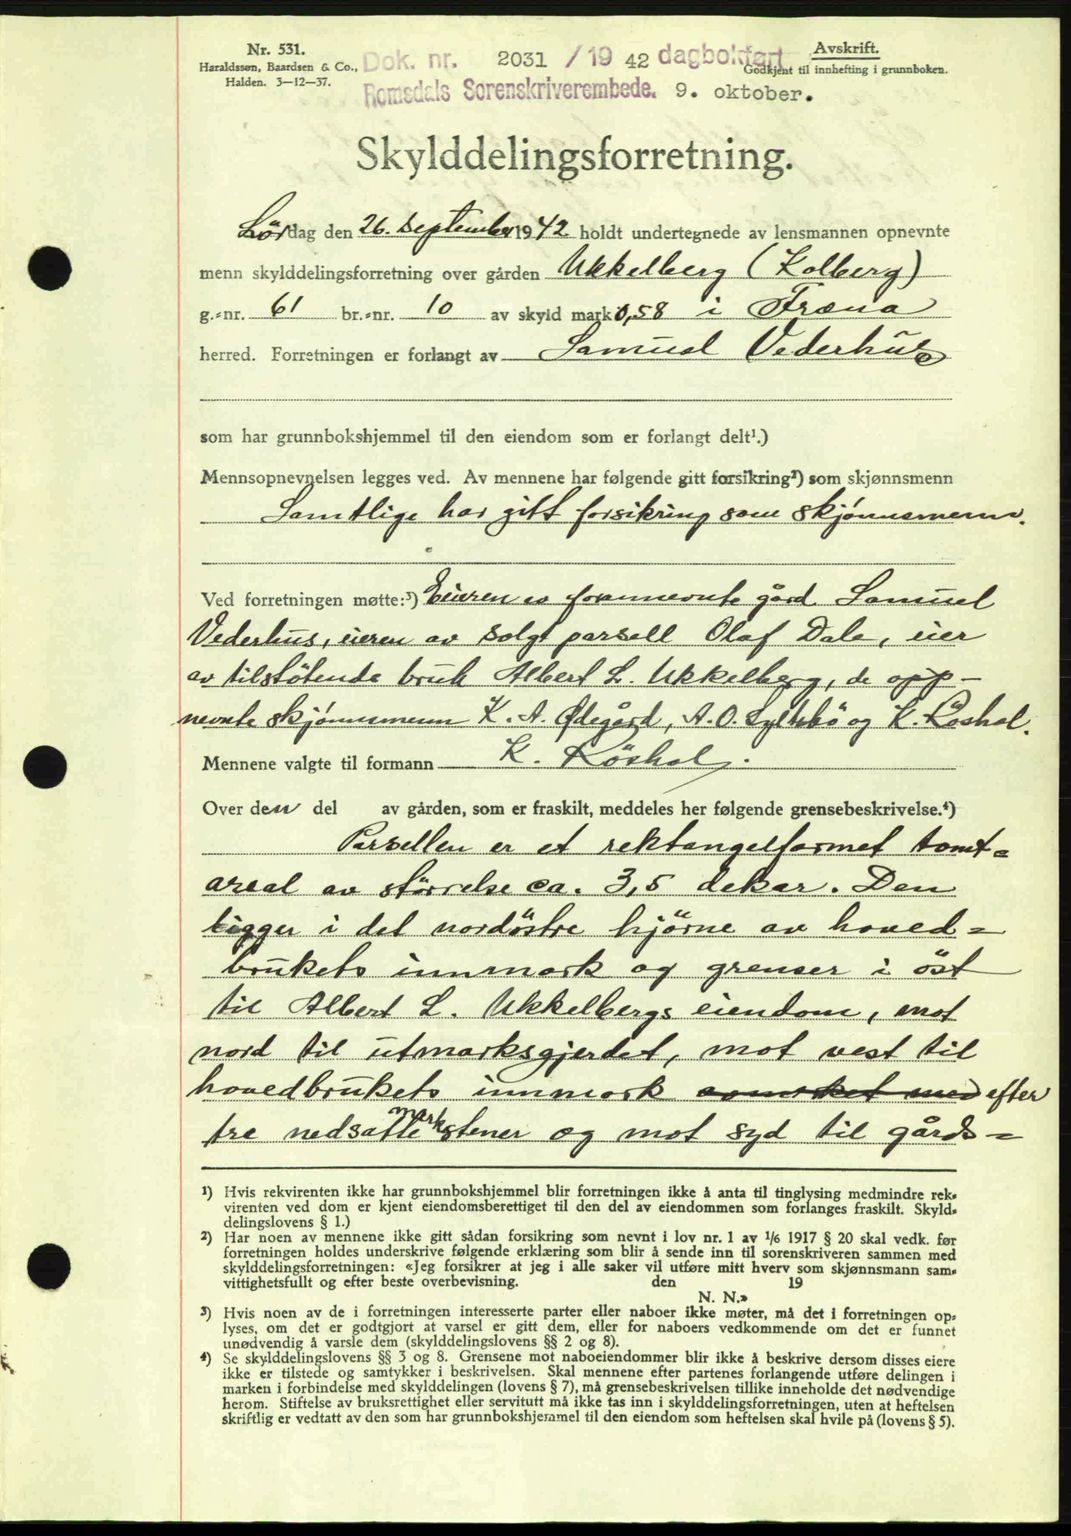 Nr. 531.
Haraldssøn, Baardsen & Co.,
Halden. 3—12—37.
Dok. nr. 2031 /19 42 dagbokført
Romsdals Sorenskriverembede. 9. oktober.
Avskrift.
Godkjent til innhefting i grunnboken.
Skylddelingsforretning.
Lørdag den 26. september 1942 holdt undertegnede av lensmannen opnevnte
menn skylddelingsforretning over gården Ukkelberg (Kolberg)
g.-nr. 61 br.-nr. 10 av skyld mark 0,58 i Fræna
herred. Forretningen er forlangt av Samuel Vederhus
som har grunnbokshjemmel til den eiendom som er forlangt delt¹.)
Mennsopnevnelsen legges ved. Av mennene har følgende gitt forsikring²) som skjønnsmenn
Samtlige har gitt forsikring som skjønnsmenn.
Ved forretningen møtte:³) Eieren av forannevnte gård Samuel
Vederhus, eieren av solgt parsell Olaf Dale, eier
av tilstøtende bruk Albert L. Ukkelberg, de opp-
nevnte skjønnsmenn K. A. Ødegård, A. O. Syltebø og K. Röshol.
Mennene valgte til formann K. Röshol.
Over den del av gården, som er fraskilt, meddeles her følgende grensebeskrivelse.⁴)
Parsellen er et rektangelformet tomt=
areal av størrelse ca. 3,5 dekar. Den
ligger i det nordöstre hjörne av hoved=
brukets innmark og grenser i öst
til Albert L. Ukkelbergs eiendom, mot
nord til utmarksgjerdet, mot vest til
hovedbrukets innmark efter
tre nedsatte merkstener og mot syd til gårds=
¹) Hvis rekvirenten ikke har grunnbokshjemmel blir forretningen ikke å anta til tinglysing medmindre rek-
virenten ved dom er kjent eiendomsberettiget til den del av eiendommen som forlanges fraskilt. Skyld-
delingslovens § 1.)
²) Har noen av mennene ikke gitt sådan forsikring som nevnt i lov nr. 1 av 1/6 1917 § 20 skal vedk. før
forretningen holdes underskrive følgende erklæring som blir å sende inn til sorenskriveren sammen med
skylddelingsforretningen: «Jeg forsikrer at jeg i alle saker vil utføre mitt hverv som skjønnsmann sam-
vittighetsfullt og efter beste overbevisning. den 19
N. N.»
³) Hvis noen av de i forretningen interesserte parter eller naboer ikke møter, må det i forretningen op-
lyses, om det er godtgjort at varsel er gitt dem, eller for naboers vedkommende om det er funnet
unødvendig å varsle dem (skylddelingslovens §§ 2 og 8).
⁴) Se skylddelingslovens §§ 3 og 8. Grensene mot naboeiendommer blir ikke å beskrive dersom disses eiere
ikke er tilstede og samtykker i beskrivelsen. Skal mennene efter partenes forlangende utføre delingen i
marken i forbindelse med skylddelingen (lovens § 7), må grensebeskrivelsen tillike inneholde det nødvendige
herom. Stiftelse av bruksrettighet eller servitutt må ikke tas inn i skylddelingsforretningen, uten at heftelsen
skriftlig er vedtatt av den som har grunnbokshjemmel til den eiendom som heftelsen skal hvile på (lovens § 5).